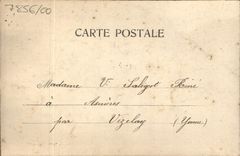 7856/00
CARTE POSTALE
Madame V. Saligot
à Asnières
par Vizelay (Yonne)